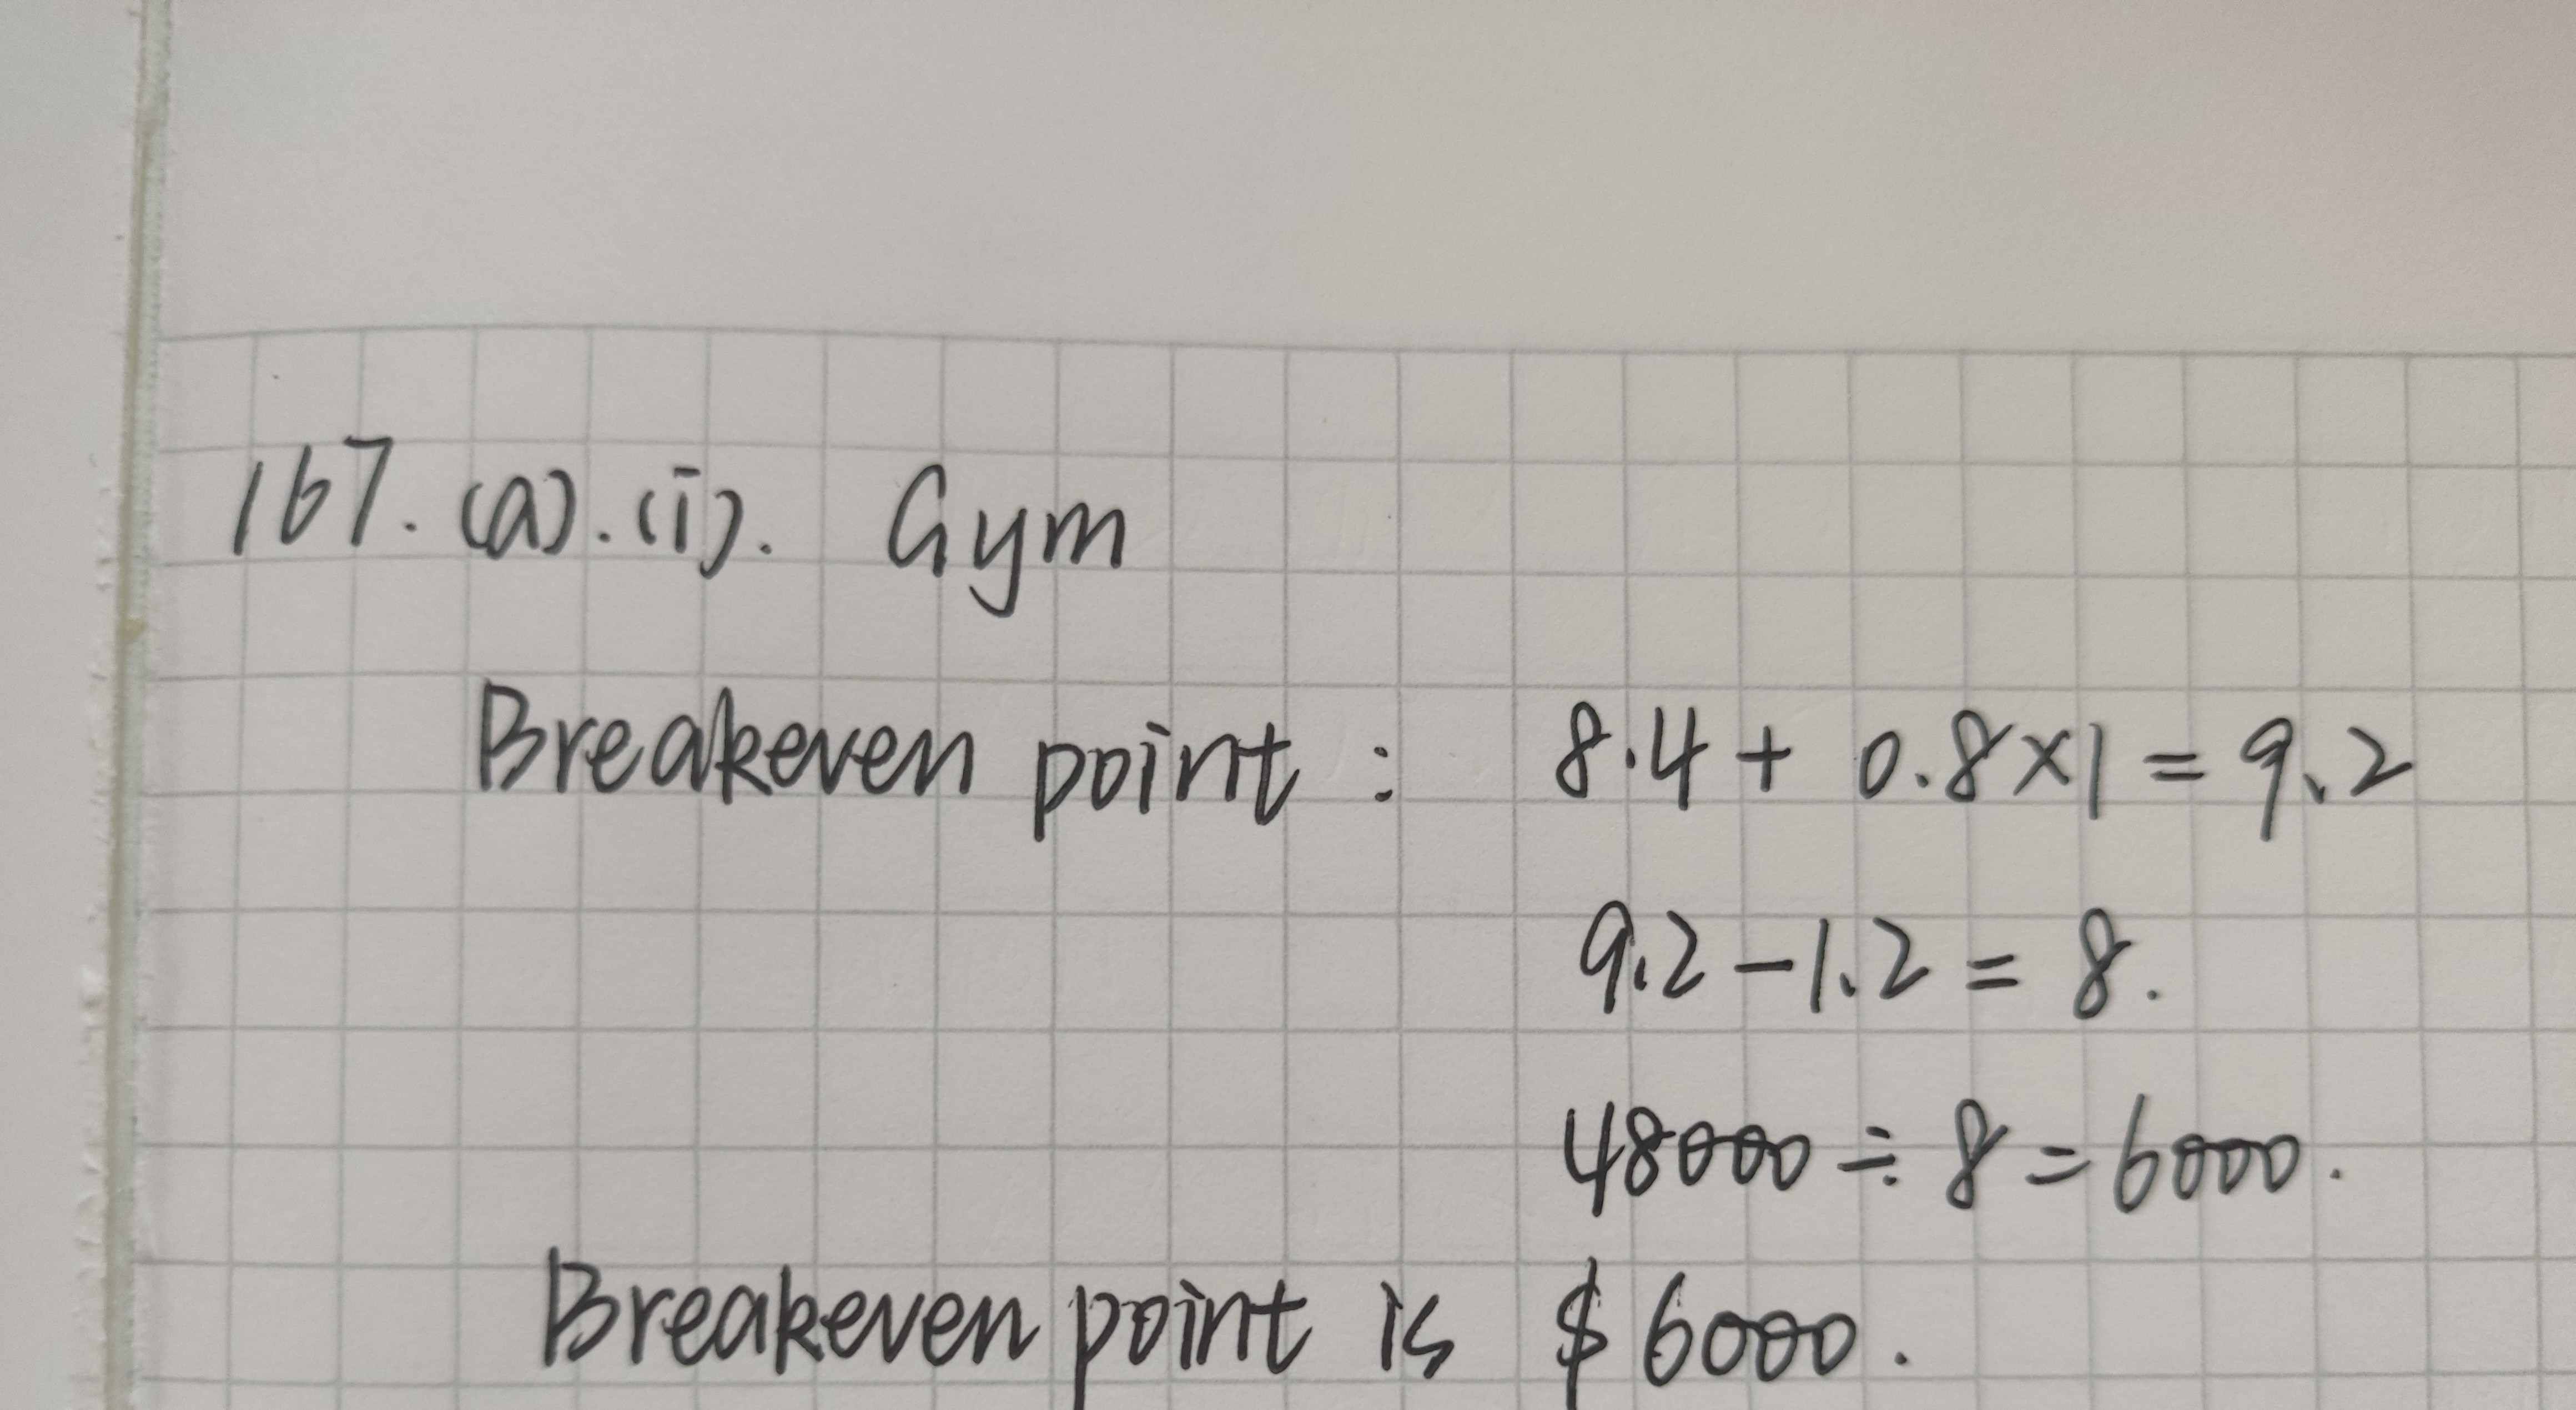 167. (a). (i). Gym
Breakeven point : 8.4 + 0.8×1 = 9.2
9.2 - 1.2 = 8.
48000 ÷ 8 = 6000.
Breakeven point is $ 6000.